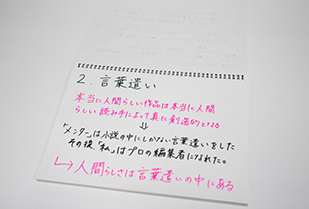 2. 言葉遣い
本当に人間らしい作品は本当に人間
らしい読み手によって真に創造的となる
⇓
「メンター」は小説の中にしかない言葉遣いをした
その後「私」はプロの編集者になれた。
↳人間らしさは言葉遣いの中にある